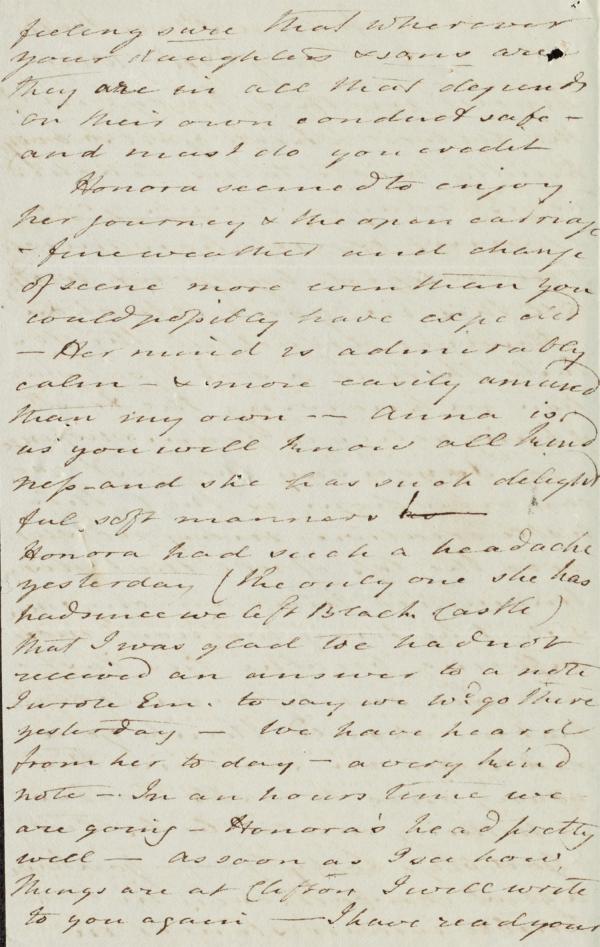 feeling sure that wherever
your daughters & sons are
they are in all that depends
on their own conduct safe -
and must do you credit
Honora seemed to enjoy
her journey & the open carriage
- fine weather and change
of scene more even than you
could possibly have expected
- Her mind is admirably
calm - & more easily amused
than my own -- Anna is
as you well know all kind
ness - and she has such delight
ful soft manners
Honora had such a headache
yesterday (the only one she has
had since we left Black Castle)
that I was glad we had not
received an answer to a note
I wrote Em. to say we wd. go there
yesterday - We have heard
from her to day - a very kind
note - In an hours time we
are going - Honora's head pretty
well - As soon as I see how
things are at Clifton I will write
to you again - I have read your